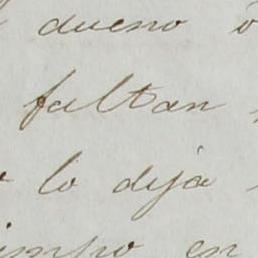 dueno o
faltan
lo dejá
en